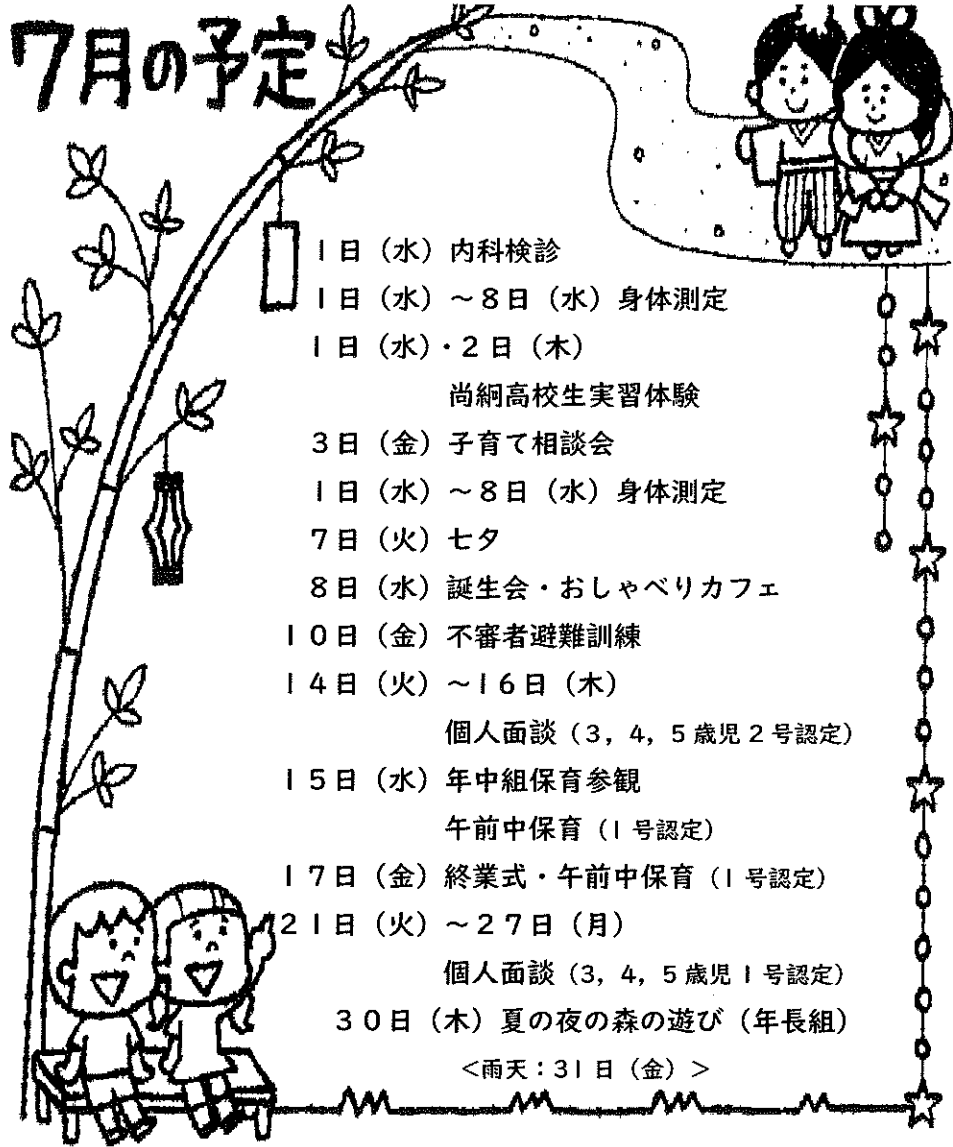 7月の予定
1日（水）内科検診
1日（水）～8日（水）身体測定
1日（水）・2日（木）
尚絅高校生実習体験
3日（金）子育て相談会
1日（水）～8日（水）身体測定
7日（火）七夕
8日（水）誕生会・おしゃべりカフェ
10日（金）不審者避難訓練
14日（火）～16日（木）
個人面談（3，4，5歳児2号認定）
15日（水）年中組保育参観
午前中保育（1号認定）
17日（金）終業式・午前中保育（1号認定）
21日（火）～27日（月）
個人面談（3，4，5歳児1号認定）
30日（木）夏の夜の森の遊び（年長組）
＜雨天：31日（金）＞